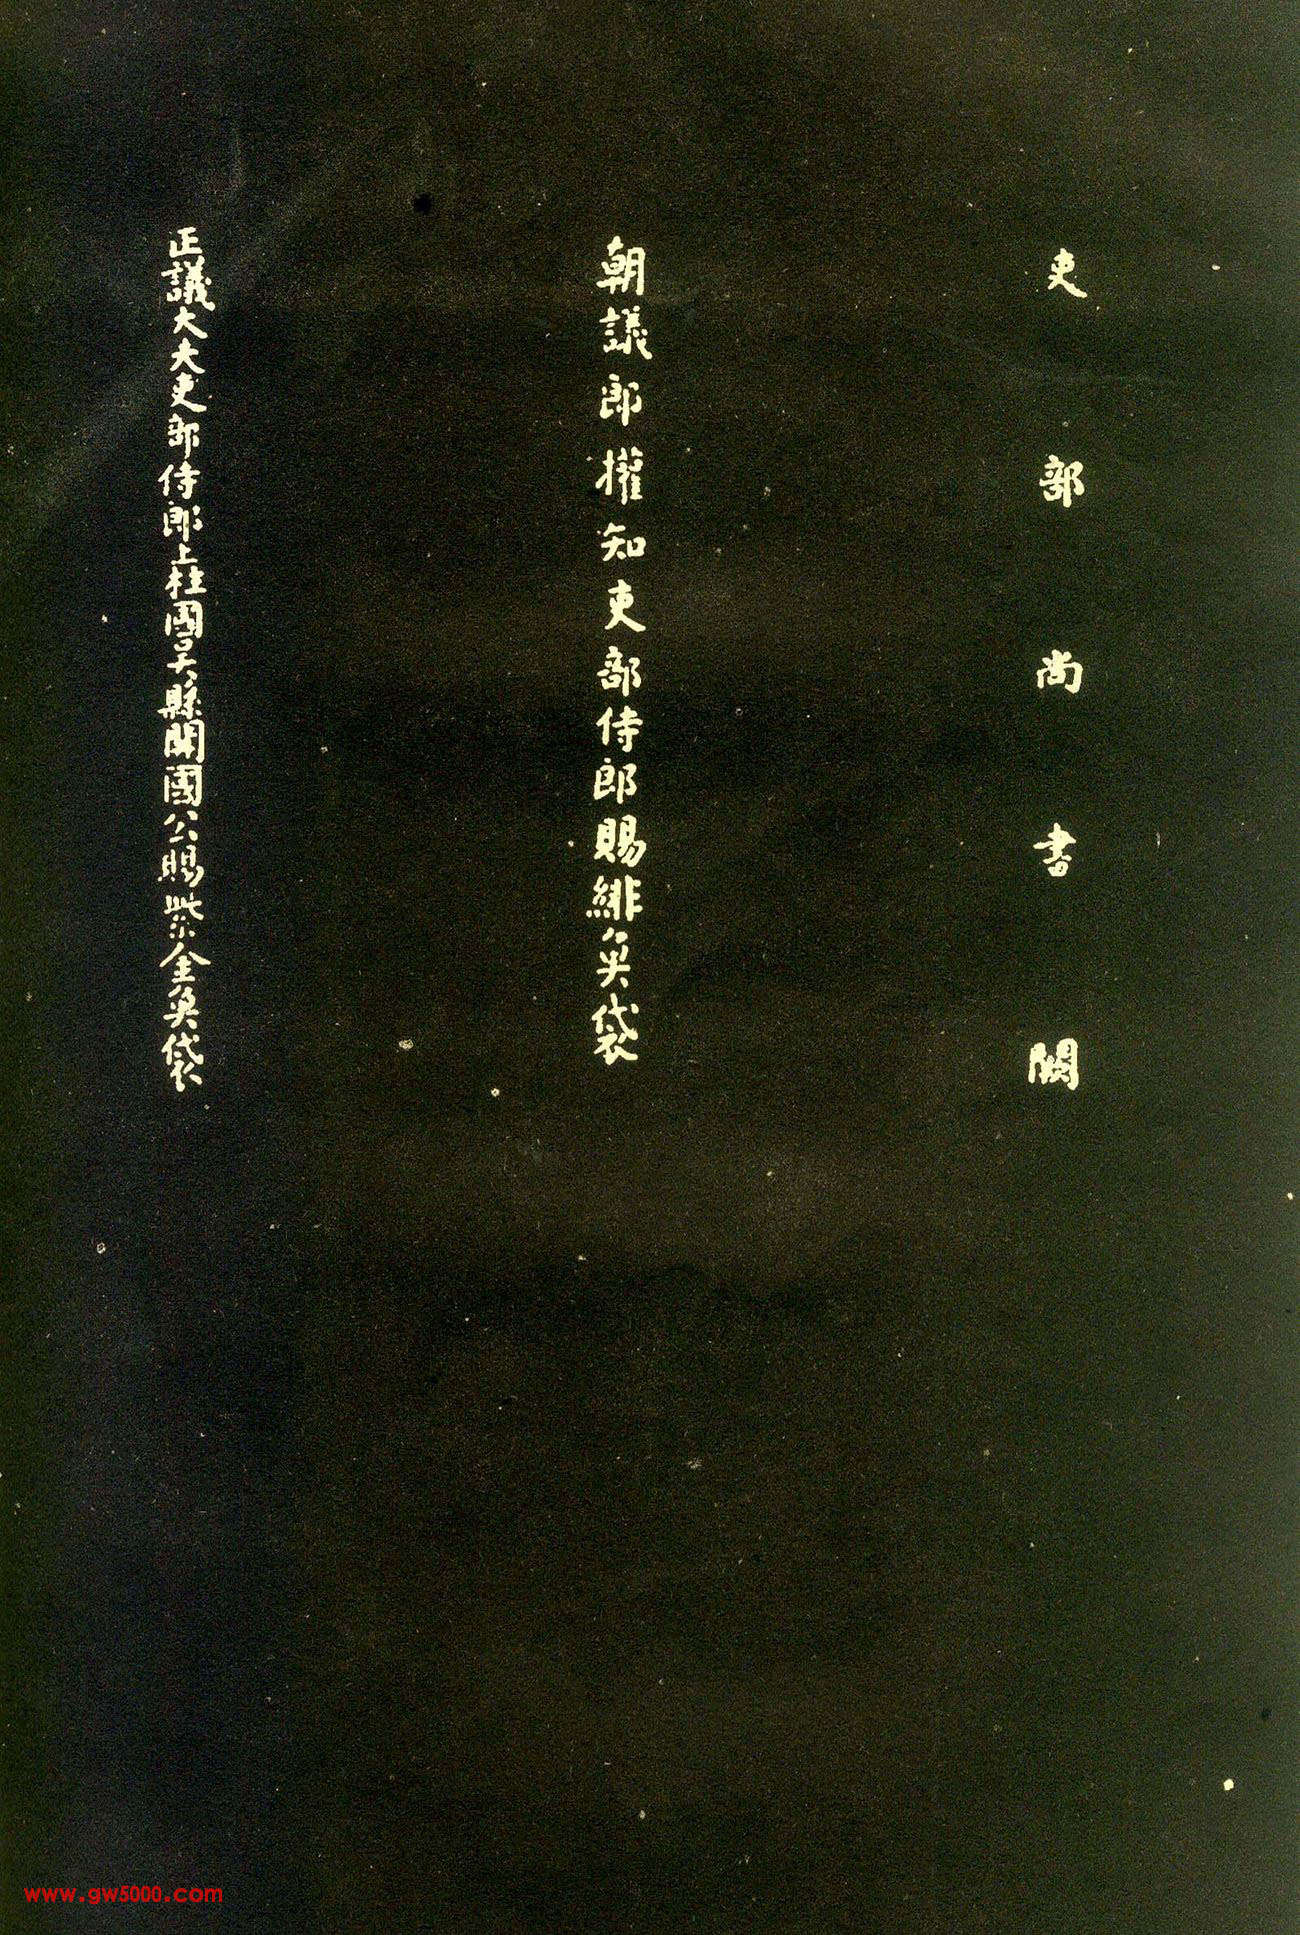 吏部尚書闕
朝議郎權知吏部侍郎賜緋魚袋
正議大夫吏部侍郎上柱國吴縣開國公賜紫金魚袋
www.gw5000.com